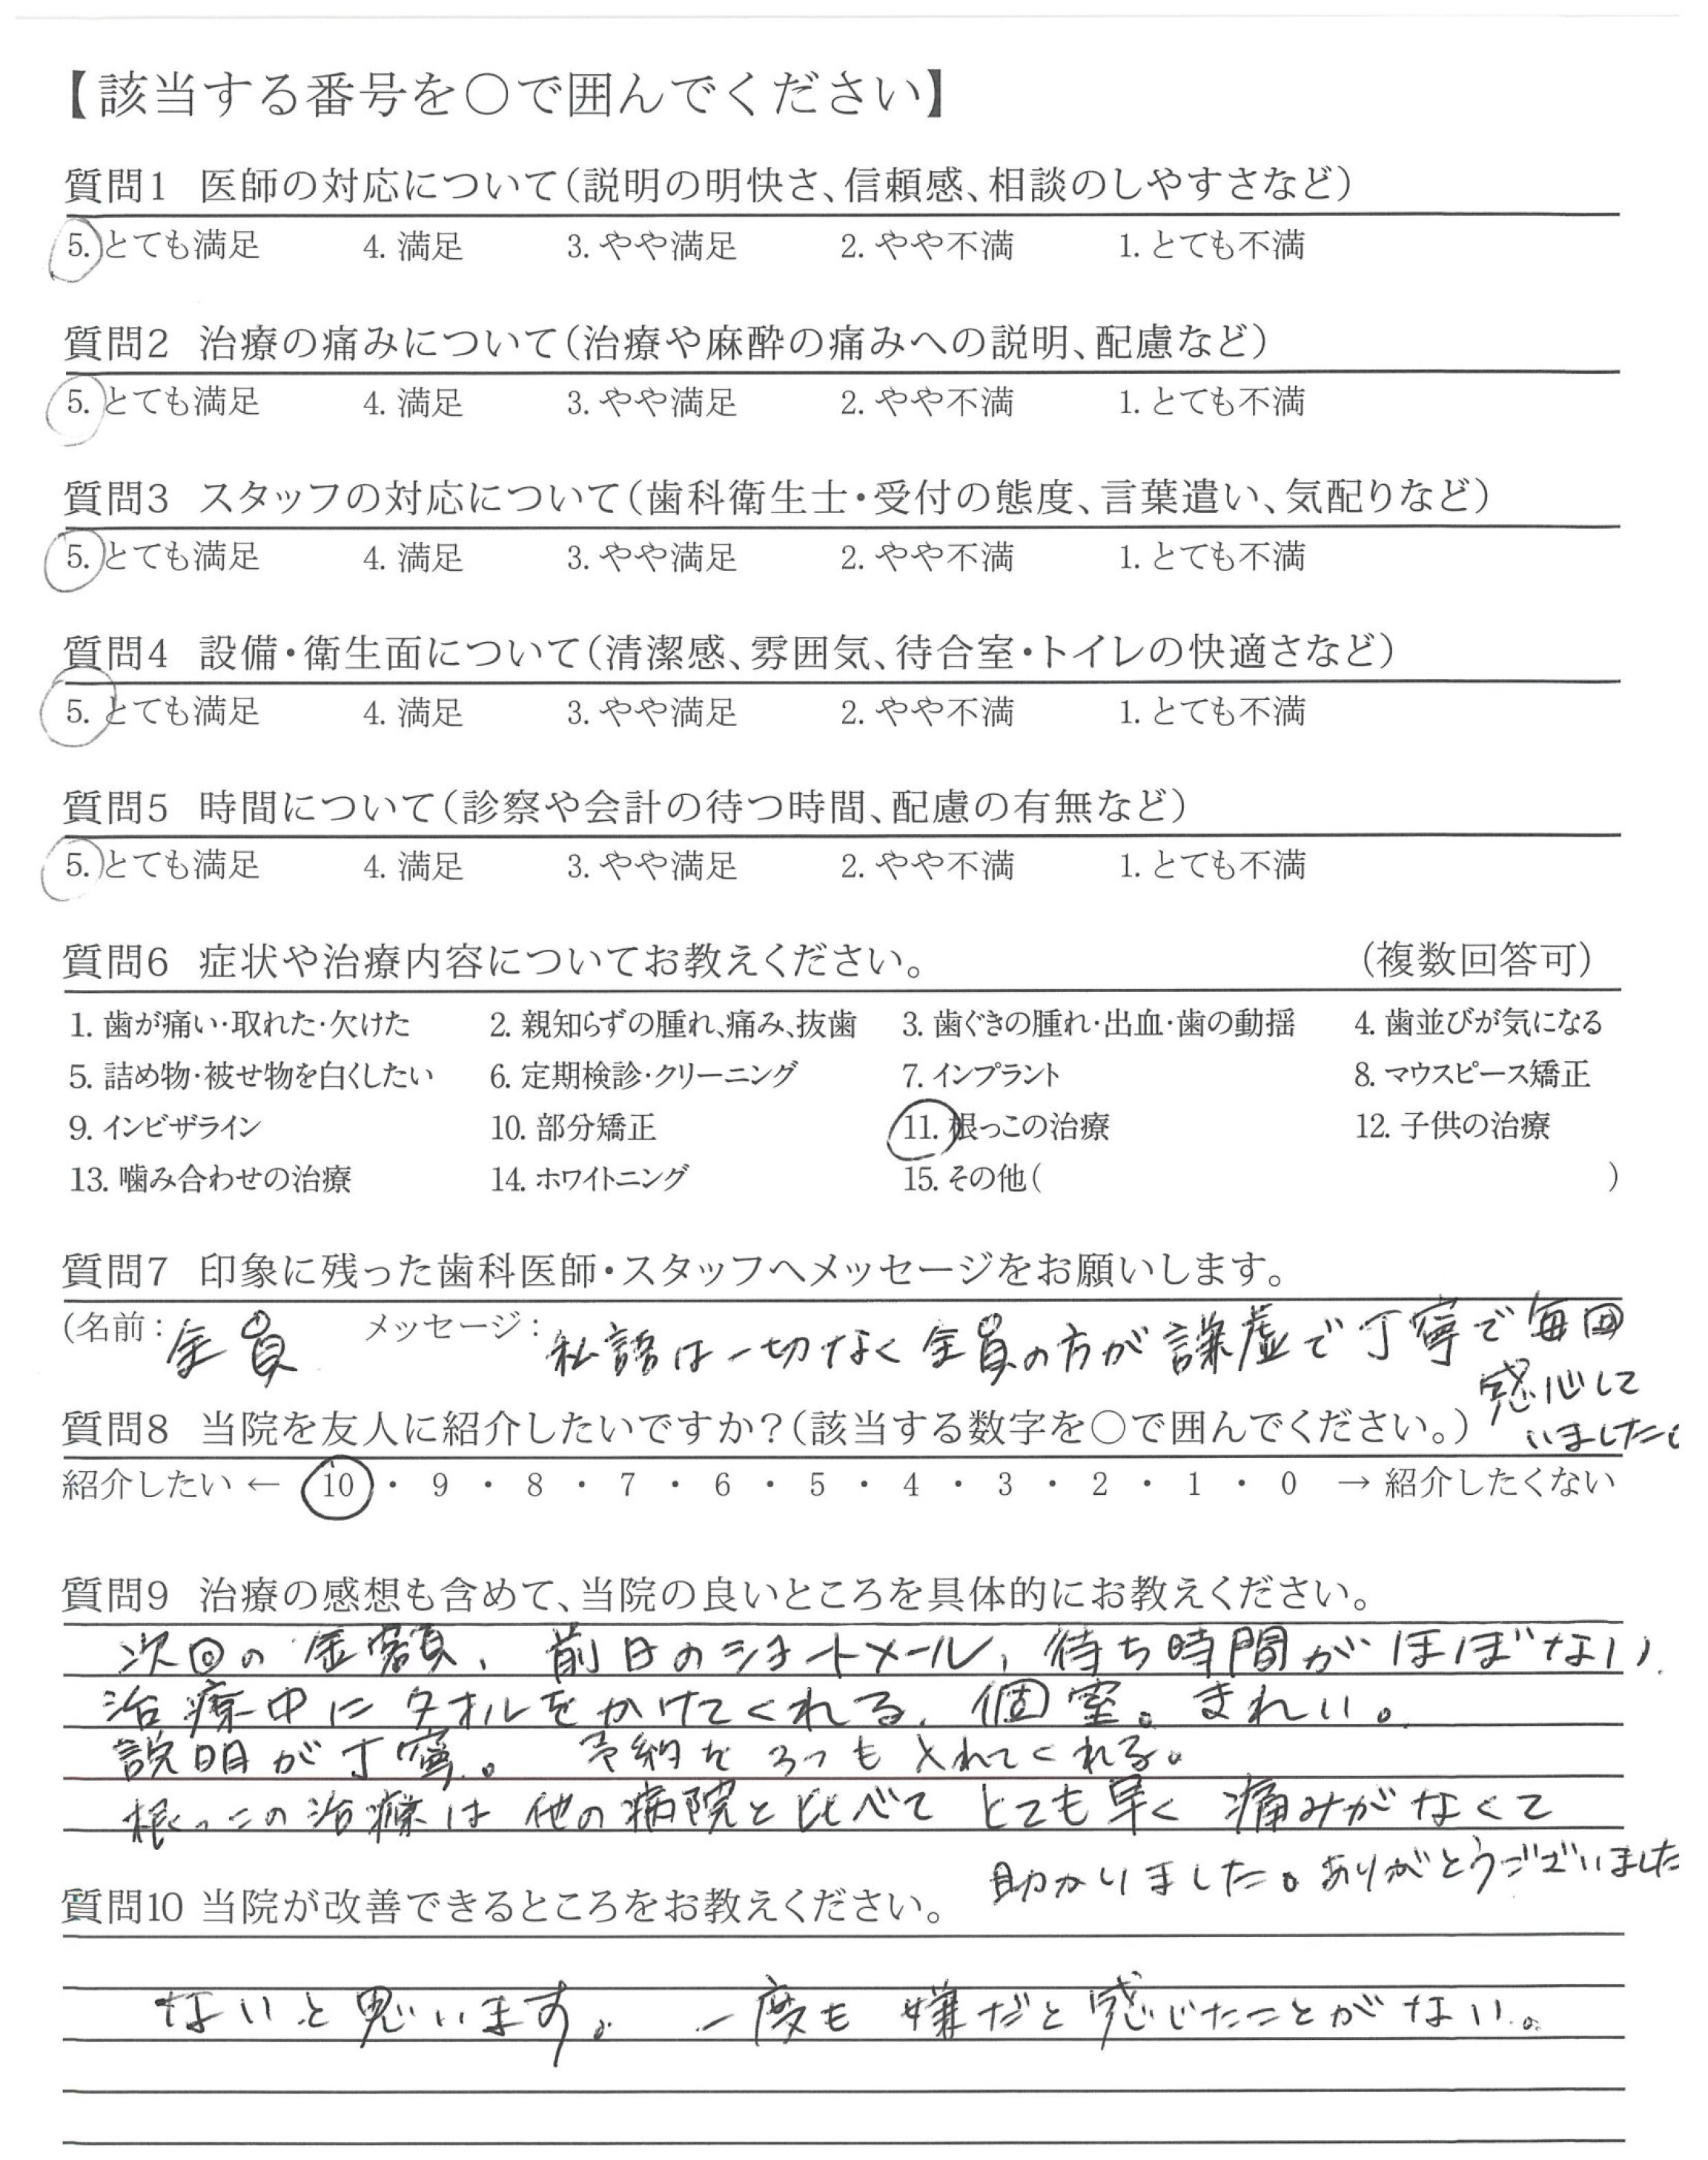 【該当する番号を〇で囲んでください】
質問1 医師の対応について(説明の明快さ、信頼感、相談のしやすさなど)
5. とても満足 4. 満足 3. やや満足 2. やや不満 1. とても不満
質問2 治療の痛みについて(治療や麻酔の痛みへの説明、配慮など)
5. とても満足 4. 満足 3. やや満足 2. やや不満 1. とても不満
質問3 スタッフの対応について(歯科衛生士・受付の態度、言葉遣い、気配りなど)
5. とても満足 4. 満足 3. やや満足 2. やや不満 1. とても不満
質問4 設備・衛生面について(清潔感、雰囲気、待合室・トイレの快適さなど)
5. とても満足 4. 満足 3. やや満足 2. やや不満 1. とても不満
質問5 時間について(診察や会計の待つ時間、配慮の有無など)
5. とても満足 4. 満足 3. やや満足 2. やや不満 1. とても不満
質問6 症状や治療内容についてお教えください。 (複数回答可)
1. 歯が痛い・取れた・欠けた 2. 親知らずの腫れ、痛み、抜歯 3. 歯ぐきの腫れ・出血・歯の動揺 4. 歯並びが気になる
5. 詰め物・被せ物を白くしたい 6. 定期検診・クリーニング 7. インプラント 8. マウスピース矯正
9. インビザライン 10. 部分矯正 11. 根っこの治療 12. 子供の治療
13. 噛み合わせの治療 14. ホワイトニング 15. その他( )
質問7 印象に残った歯科医師・スタッフへメッセージをお願いします。
(名前: 全員 メッセージ: 私語は一切なく全員の方が謙虚で丁寧で毎回
感心して
いました。
質問8 当院を友人に紹介したいですか?(該当する数字を〇で囲んでください。)
紹介したい ← 10 ・ 9 ・ 8 ・ 7 ・ 6 ・ 5 ・ 4 ・ 3 ・ 2 ・ 1 ・ 0 → 紹介したくない
質問9 治療の感想も含めて、当院の良いところを具体的にお教えください。
次回の金額、前日のショートメール、待ち時間がほぼない、
治療中にタオルをかけてくれる、個室。きれい。
説明が丁寧。 予約を3つも入れてくれる。
根っこの治療は他の病院と比べてとても早く痛みがなくて
助かりました。ありがとうございました
質問10 当院が改善できるところをお教えください。
ないと思います。 一度も嫌だと感じたことがない。